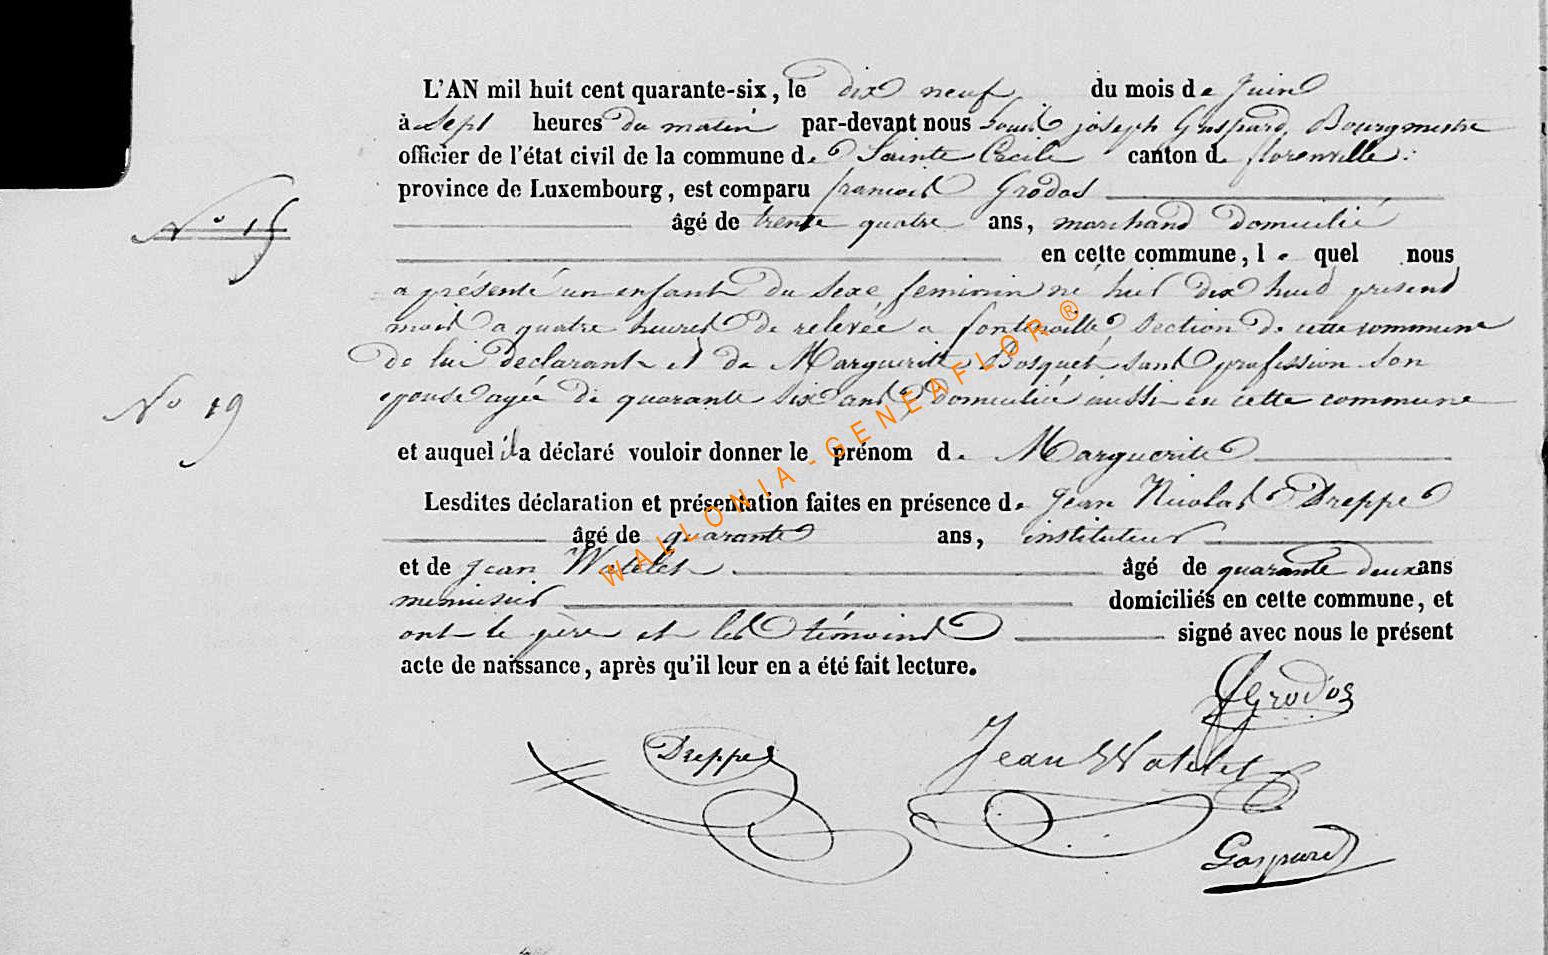 L'AN mil huit cent quarante-six, le dix neuf du mois de juin
à Sept heures du matin par-devant nous Louis joseph Gaspard, Bourgmestre
officier de l'état civil de la commune de Sainte Cecile canton de florenville
province de Luxembourg, est comparu francois Grodos
N° 15
âgé de trente quatre ans, marchand Domicilié
en cette commune, le quel nous
a présenté un enfant du sexe feminin né hier dix huit present
mois a quatre heures de relevée a fontenoille, section de cette commune
de lui declarant et de Marguerite Bosquet sans profession son
N° 19
epouse agée de quarante six ans domicilié aussi en cette commune
et auquel il a déclaré vouloir donner le prénom de Marguerite
Lesdites déclaration et présentation faites en présence de Jean Nicolas Dreppe
âgé de quarante ans, instituteur
et de jean Watelet âgé de quarante deux ans
menuisier domiciliés en cette commune, et
ont le père et les témoins signé avec nous le présent
acte de naissance, après qu'il leur en a été fait lecture.
Grodos
Dreppe Jean Watelet
Gaspard
WALLONIA-GENEAFLOR®